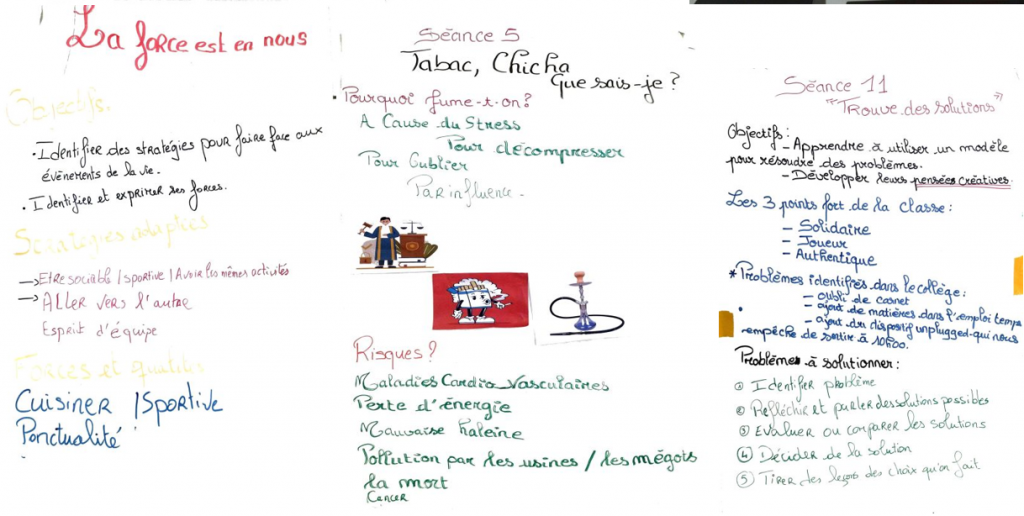 La force est en nous
Objectifs.
. Identifier des stratégies pour faire face aux
évènements de la vie.
. Identifier et exprimer ses forces.
Stratégies adaptées
→ Etre sociable / sportive / Avoir les mêmes activités
→ Aller vers l'autre
Esprit d'équipe
Forces et qualités
Cuisiner / Sportive
Ponctualité
Séance 5
Tabac, Chicha
Que sais-je ?
. Pourquoi fume-t-on ?
A Cause du Stress
Pour décompresser
Pour Oublier
Par influence.
Risques ?
Maladies Cardio Vasculaires
Perte d'énergie
Mauvaise haleine
Pollution par les usines / les mégots
la mort
Cancer
Séance 11
"Trouve des solutions"
Objectifs :
- Apprendre à utiliser un modèle
pour résoudre des problèmes.
- Développer leurs pensées créatives.
Les 3 points fort de la classe :
- Solidaire
- Joueur
- Authentique
* Problèmes identifiés dans le collège :
- oubli de carnet
- ajout de matières dans l'emploi temps
- ajout du dispositif unplugged qui nous
empêche de sortir à 10h00.
Problèmes à solutionner :
① Identifier problème
② Réfléchir et parler des solutions possibles
③ Evaluer ou comparer les solutions
④ Décider de la solution
⑤ Tirer des leçons des choix qu'on fait